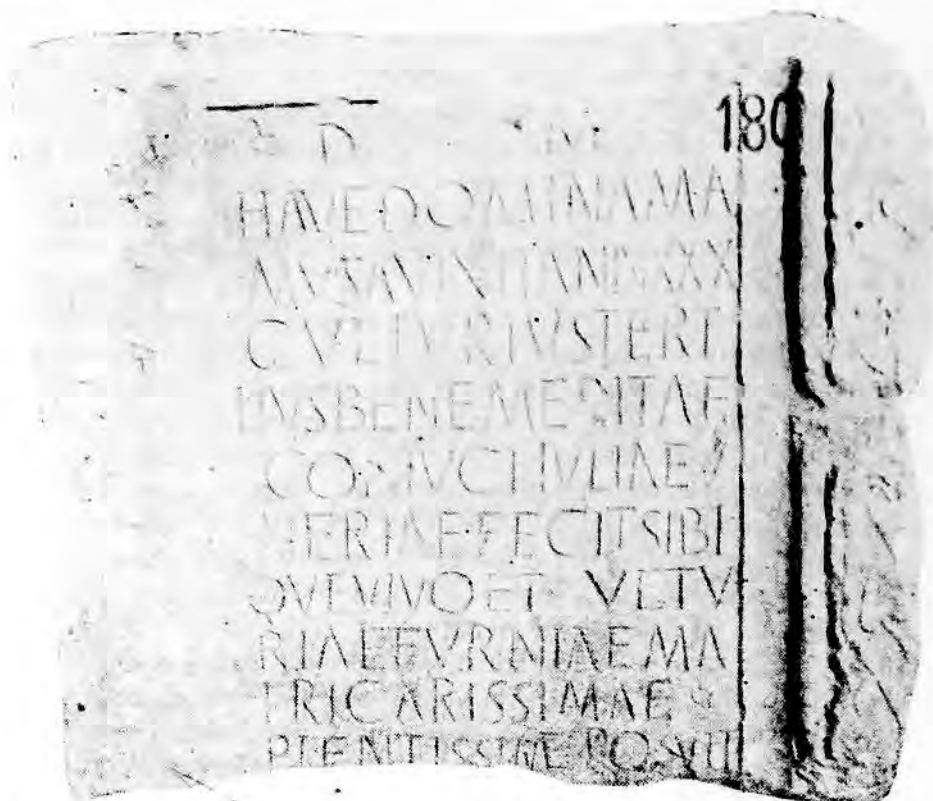 180
D M
HAVE DOMINA MA
VIXIT ANN XXX
C VETVRIVS TERT
BENEMERITAE
CONIVGI IVLIAE V
NERIAE FECIT SIBI
QVE VIVO ET VETV
RIAE MA
TRI CARISSIMAE
PIENTISSIME